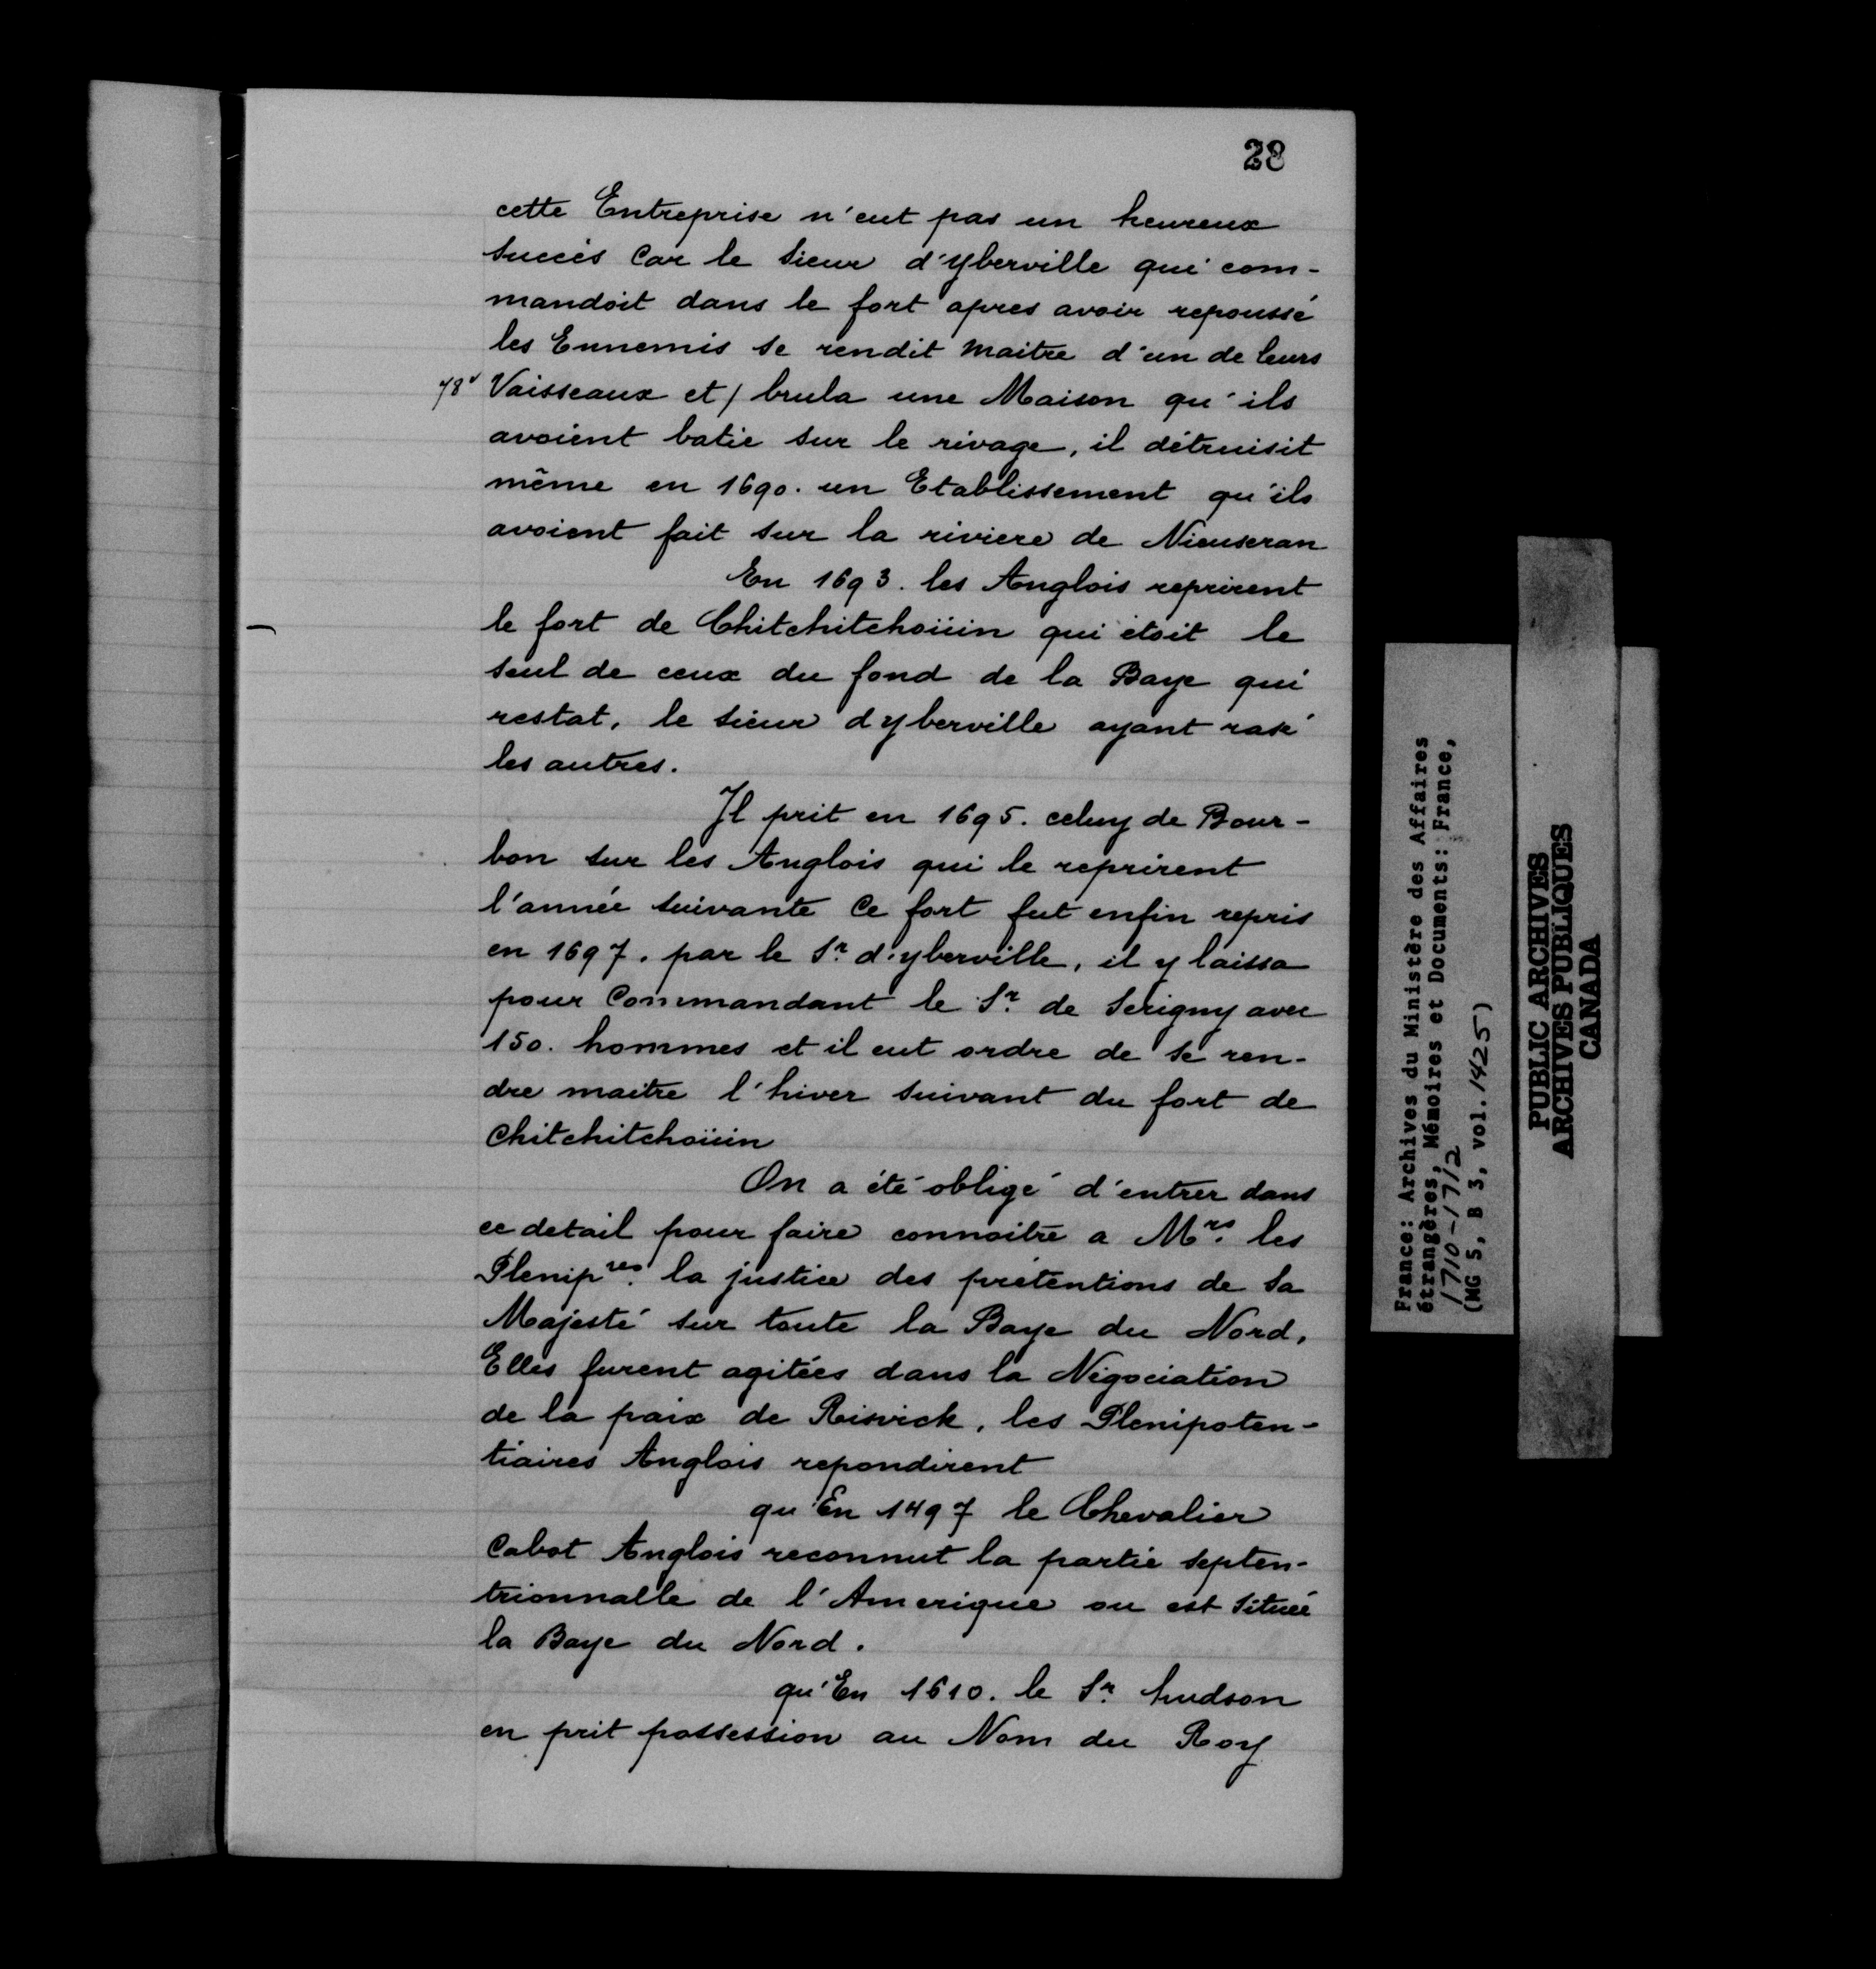 28
cette Entreprise n'eut pas un heureux
succès Car le Sieur d'yberville qui com-
mandoit dans le fort apres avoir repoussé
les Ennemis se rendit maitre d'un de leurs
78v Vaisseaux et / brula une Maison qu'ils
avoient batie sur le rivage, il détruisit
même en 1690. un Etablissement qu'ils
avoient fait sur la riviere de Nieuseran
En 1693. les Anglois reprirent
le fort de Chitchitchoüin qui étoit le
seul de ceux du fond de la Baye qui
restat, le sieur dyberville ayant rasé
les autres.
Il prit en 1695. celuy de Bour-
bon sur les Anglois qui le reprirent
l'année suivante Ce fort fut enfin repris
en 1697. par le Sr. d'yberville, il y laissa
pour Commandant le Sr. de Serigny avec
150. hommes et il eut ordre de se ren-
dre maitre l'hiver suivant du fort de
Chitchitchoüin
On a été obligé d'entrer dans
ce detail pour faire connoitre a Mrs. les
Plenipres. la justice des prétentions de Sa
Majesté sur toute la Baye du Nord,
Elles furent agitées dans la Négociation
de la paix de Riswick, les Plenipoten-
tiaires Anglois repondirent
qu'En 1497 le Chevalier
Cabot Anglois reconnut la partie septen-
trionnalle de l'Amerique ou est située
la Baye du Nord.
qu'En 1610. le Sr. hudson
en prit possession au Nom du Roy
France: Archives du Ministère des Affaires
étrangères, Mémoires et Documents: France,
1710-1712
(MG 5, B 3, vol. 1425)
PUBLIC ARCHIVES
ARCHIVES PUBLIQUES
CANADA